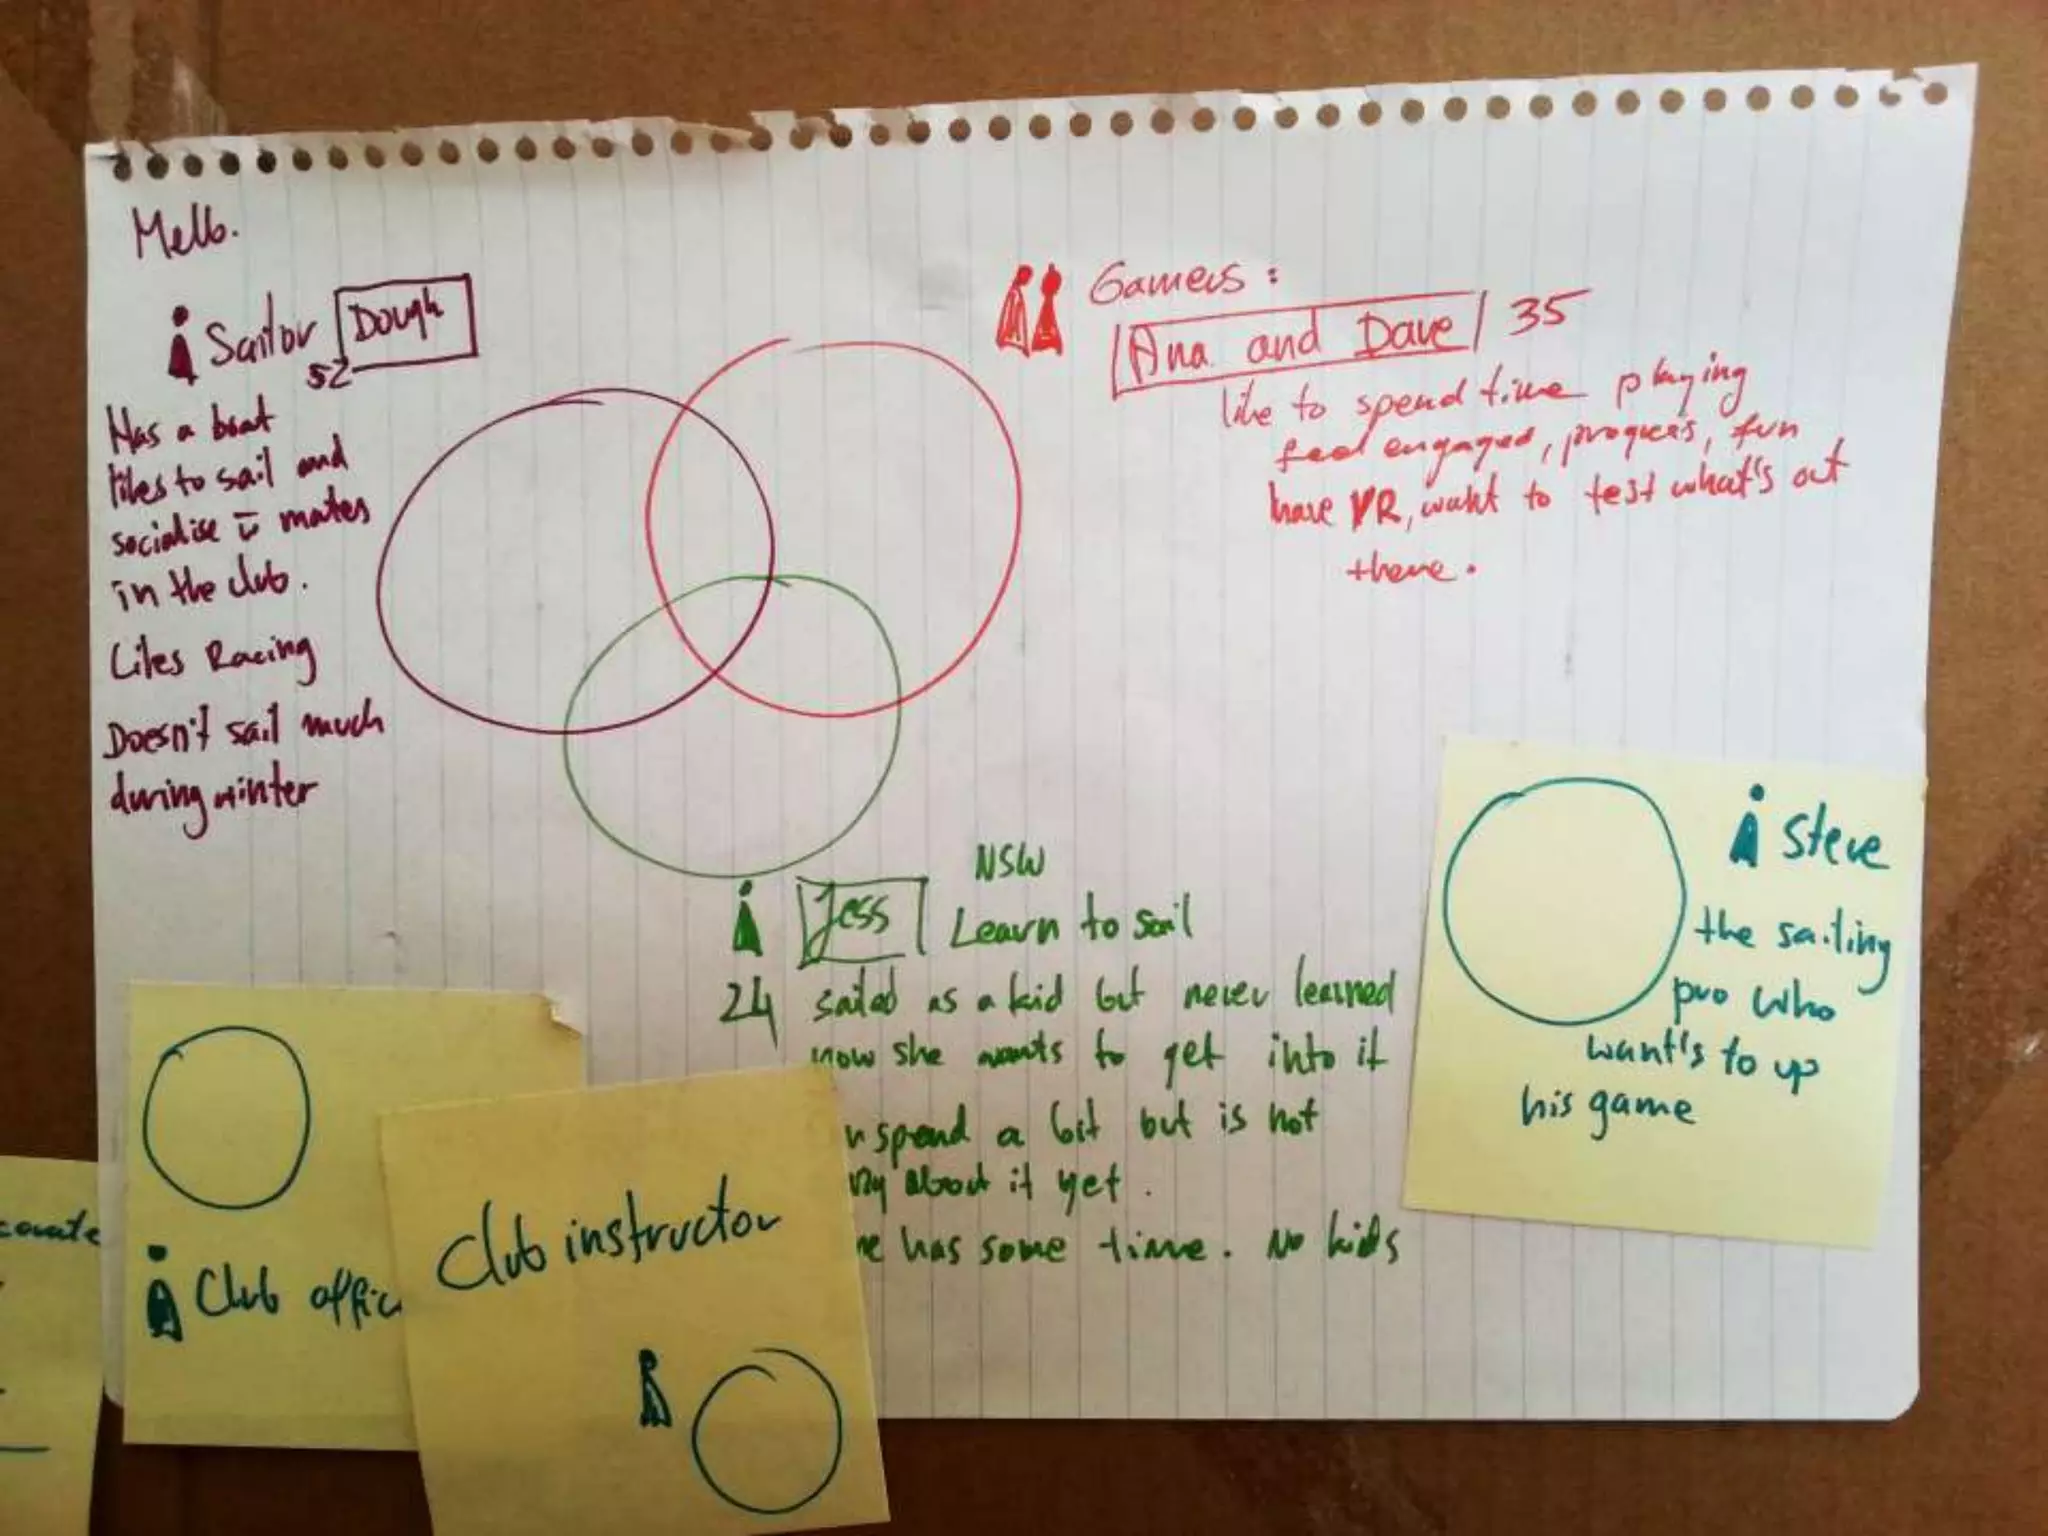 Melb.
Sailor Dough
52
Has a boat
likes to sail and
socialise c̄ mates
in the club.
Likes Racing
Doesn't sail much
during winter
Gamers:
Ana and Dave 35
like to spend time playing
feel engaged, progress, fun
have VR, want to test what's out
there.
NSW
Jess Learn to sail
24 sailed as a kid but never learned
now she wants to get into it
spend a bit but is not
about it yet.
has some time. No kids
Steve
the sailing
pro who
want's to up
his game
Club
Club instructor